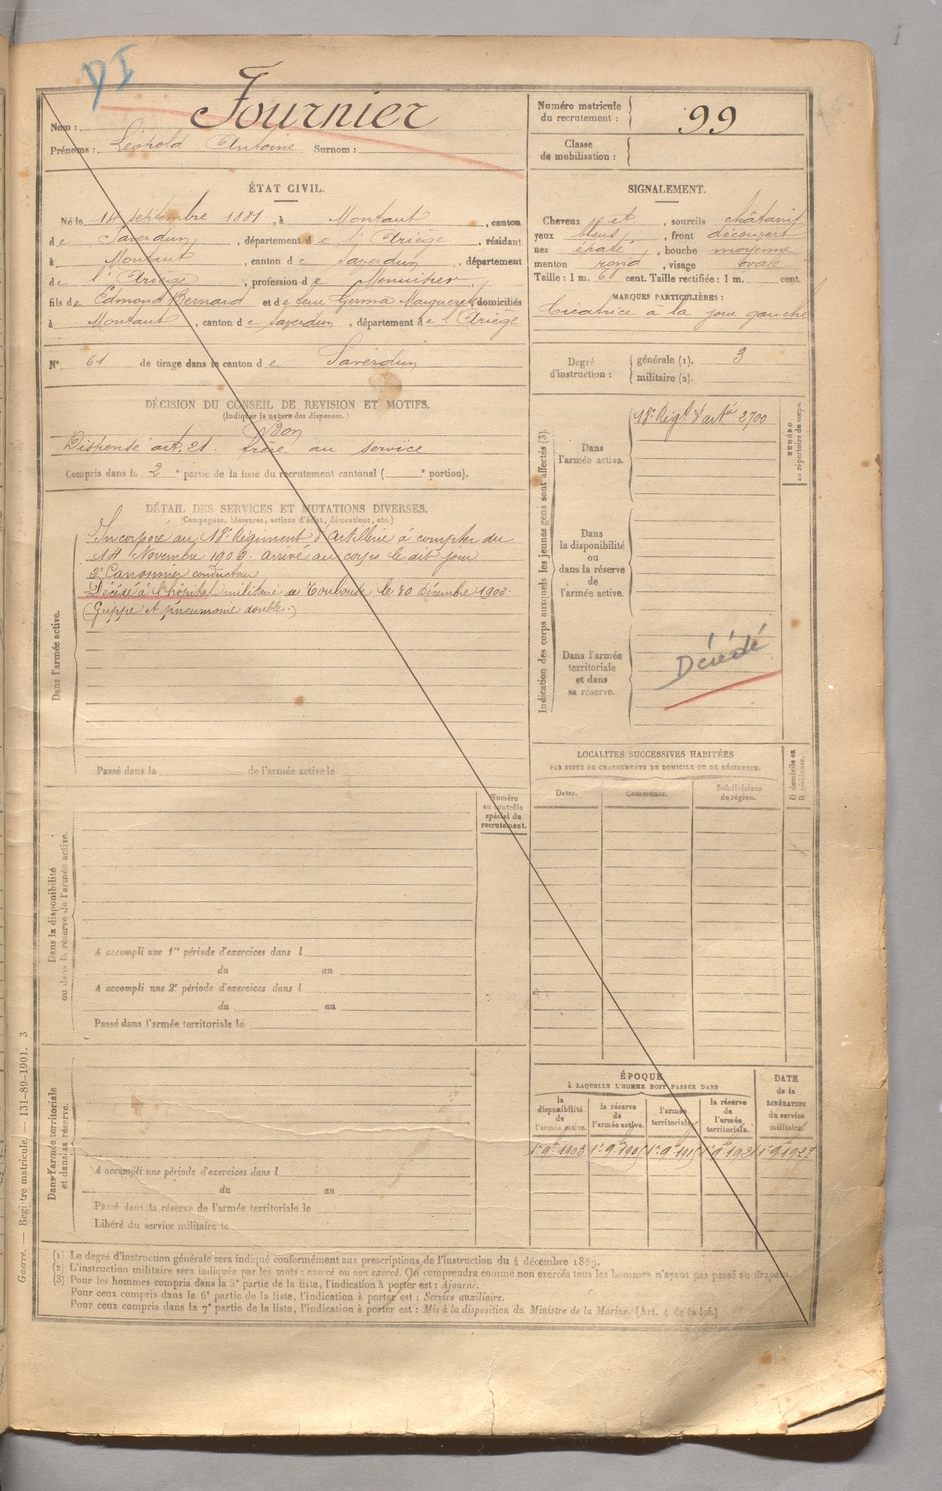 DI
Nom : Fournier
Prénoms : Léopold Antoine Surnom :
Numéro matricule du recrutement : 99
Classe de mobilisation :
ÉTAT CIVIL.
Né le 14 septembre 1881, à Montaut, canton
de Saverdun, département de l'Ariège, résidant
à Montaut, canton de Saverdun, département
de l'Ariège, profession de Menuisier
fils de Edmond Bernard et de feue Germa Marguerite domiciliés
à Montaut, canton de Saverdun, département de l'Ariège
N° 61 de tirage dans le canton de Saverdun
SIGNALEMENT.
Cheveux et, sourcils châtains
yeux bleus, front découvert
nez épaté, bouche moyenne
menton rond, visage ovale
Taille : 1 m. 61 cent. Taille rectifiée : 1 m. cent.
MARQUES PARTICULIÈRES :
Cicatrice à la joue gauche
Degré d'instruction :
générale (1). 3
militaire (2).
DÉCISION DU CONSEIL DE REVISION ET MOTIFS.
(Indiquer la nature des dispenses.)
Bon
Dispensé art. 21. frère au service
Compris dans la 2e partie de la liste du recrutement cantonal ( e portion).
DÉTAIL DES SERVICES ET MUTATIONS DIVERSES.
(Campagnes, blessures, actions d'éclat, décorations, etc.)
Dans l'armée active.
Incorporé au 18e Régiment d'Artillerie à compter du
14 Novembre 190 arrivé au corps le dit jour
2e Canonnier conducteur
Décédé à l'hôpital militaire de Toulouse le 30 décembre 190
(Grippe et pneumonie double.)
Passé dans la de l'armée active le
Indication des corps auxquels les jeunes gens sont affectés (3).
Dans l'armée active.
18e Régt d'artie 2700
NUMÉRO au répertoire du corps.
Dans la disponibilité ou dans la réserve de l'armée active.
Dans l'armée territoriale et dans sa réserve.
Décédé
LOCALITÉS SUCCESSIVES HABITÉES
PAR SUITE DE CHANGEMENTS DE DOMICILE OU DE RÉSIDENCE.
Dates. Communes. Subdivisions de région. D domicile ou R résidence.
Numéro au contrôle spécial du recrutement.
Dans la disponibilité
ou dans la réserve de l'armée active.
A accompli une 1re période d'exercices dans l
du au
A accompli une 2e période d'exercices dans l
du au
Passé dans l'armée territoriale le
Dans l'armée territoriale
et dans sa réserve.
A accompli une période d'exercices dans l
du au
Passé dans la réserve de l'armée territoriale le
Libéré du service militaire le
ÉPOQUE
À LAQUELLE L'HOMME DOIT PASSER DANS
la disponibilité de l'armée active.
la réserve de l'armée active.
l'armée territoriale.
la réserve de l'armée territoriale.
DATE de la LIBÉRATION du service militaire.
1er 9bre 1903 1er 9bre 1905 1er 9bre 1915 1er 9bre 1921 1er 9bre 1927
(1) Le degré d'instruction générale sera indiqué conformément aux prescriptions de l'instruction du 4 décembre 1889.
(2) L'instruction militaire sera indiquée par les mots : exercé ou non exercé. On comprendra comme non exercés tous les hommes n'ayant pas passé au drapeau.
(3) Pour les hommes compris dans la 5e partie de la liste, l'indication à porter est : Ajourné.
Pour ceux compris dans la 6e partie de la liste, l'indication à porter est : Service auxiliaire.
Pour ceux compris dans la 7e partie de la liste, l'indication à porter est : Mis à la disposition du Ministre de la Marine. (Art. 4 de la loi.)
Guerre. — Registre matricule. — 131-89-1901. 3